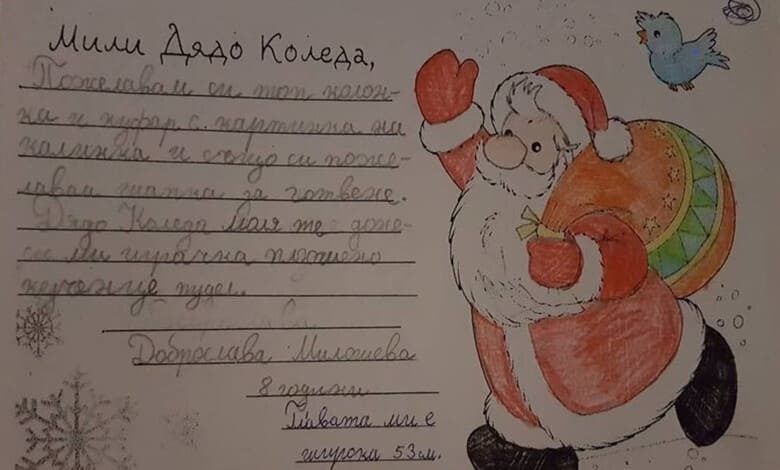 Мили Дядо Коледа,
Пожелавам си топ колон-
ка и куфар с картинка на
калинка и също си поже-
лавам шапка за готвене.
Дядо Коледа моля те доне-
ми играчка плюшено
кученце пудел.
Доброслава Милошева
8 години
Главата ми е
широка 53 см.